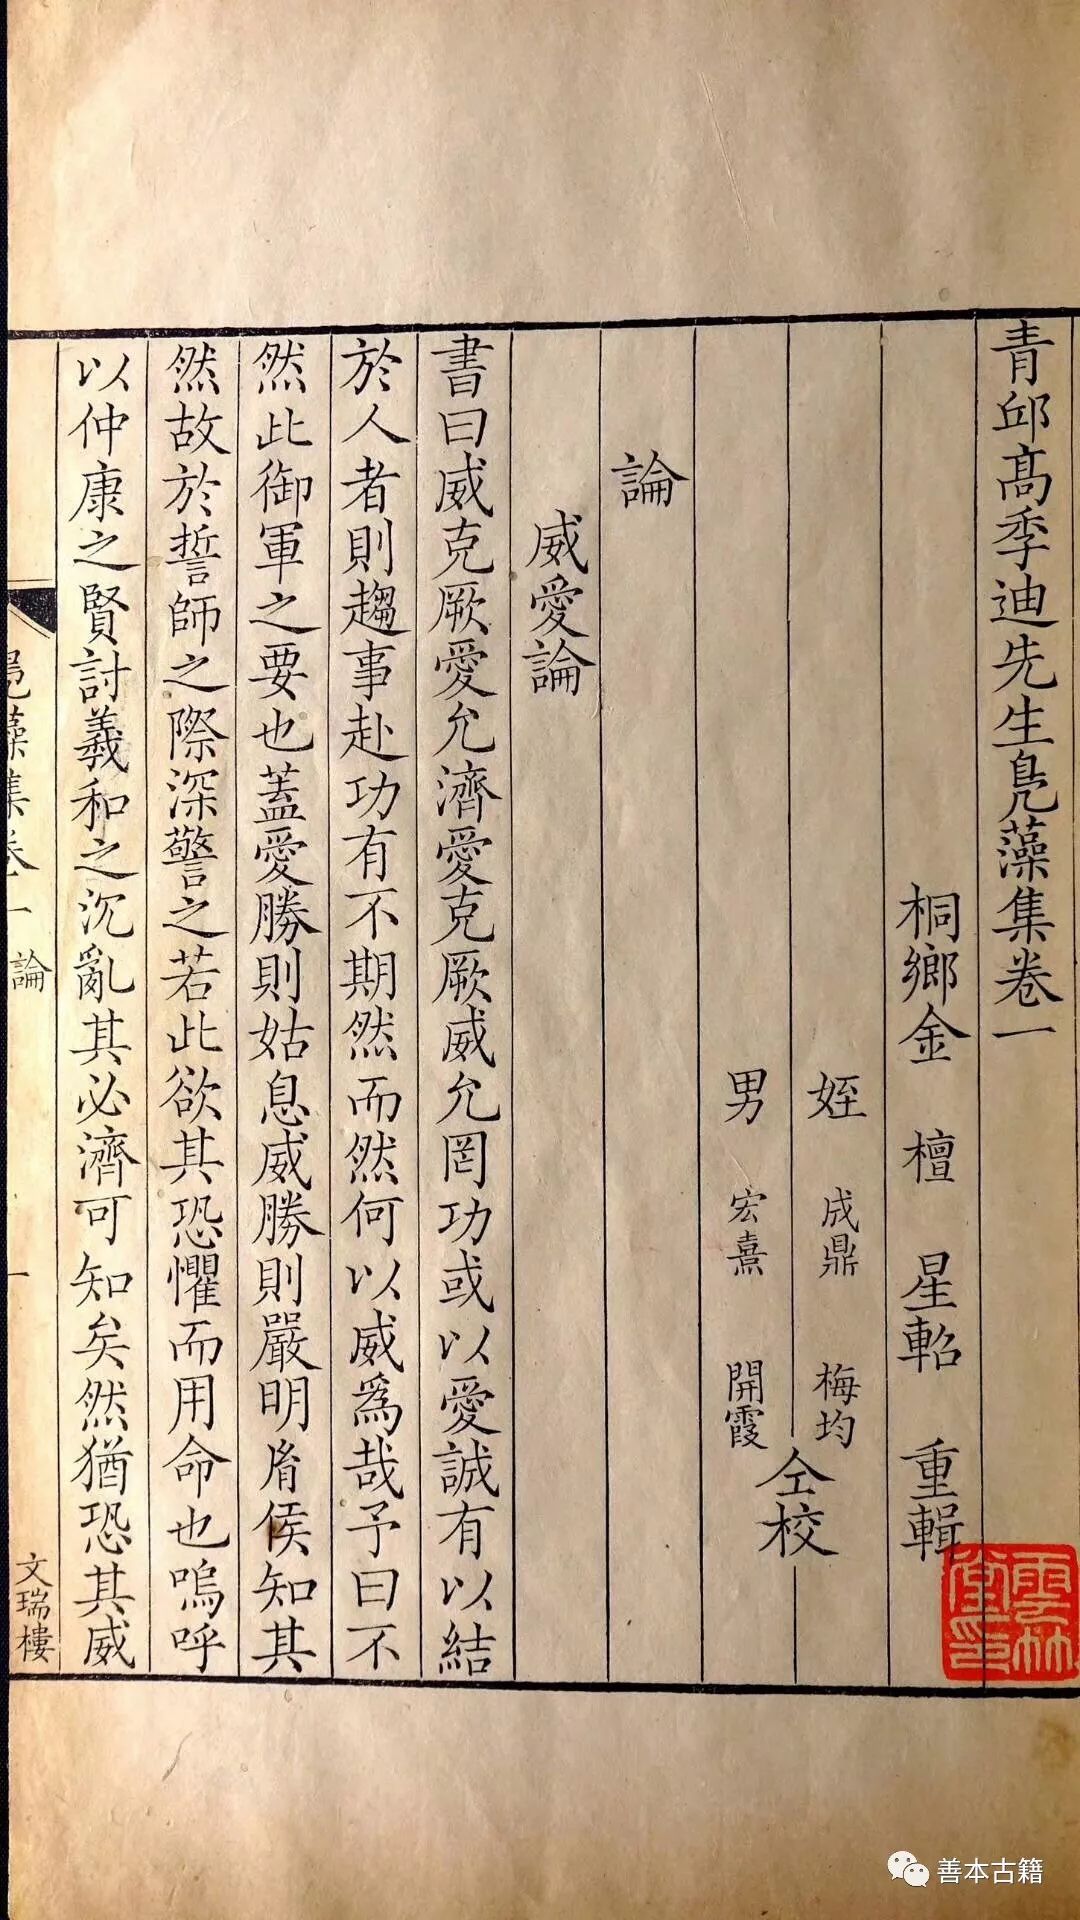 青邱高季迪先生鳬藻集卷一
桐鄉金 檀 星軺 重輯
姪 成鼎 梅均
男 宏熹 開霞
仝校
論
威愛論
書曰威克厥愛允濟愛克厥威允罔功或以愛誠有以結
於人者則趨事赴功有不期然而然何以威爲哉予曰不
然此御軍之要也蓋愛勝則姑息威勝則嚴明胤侯知其
然故於誓師之際深警之若此欲其恐懼而用命也嗚呼
以仲康之賢討羲和之沉亂其必濟可知矣然猶恐其威
鳬藻集卷一 論 一 文瑞樓
雲林堂印
善本古籍